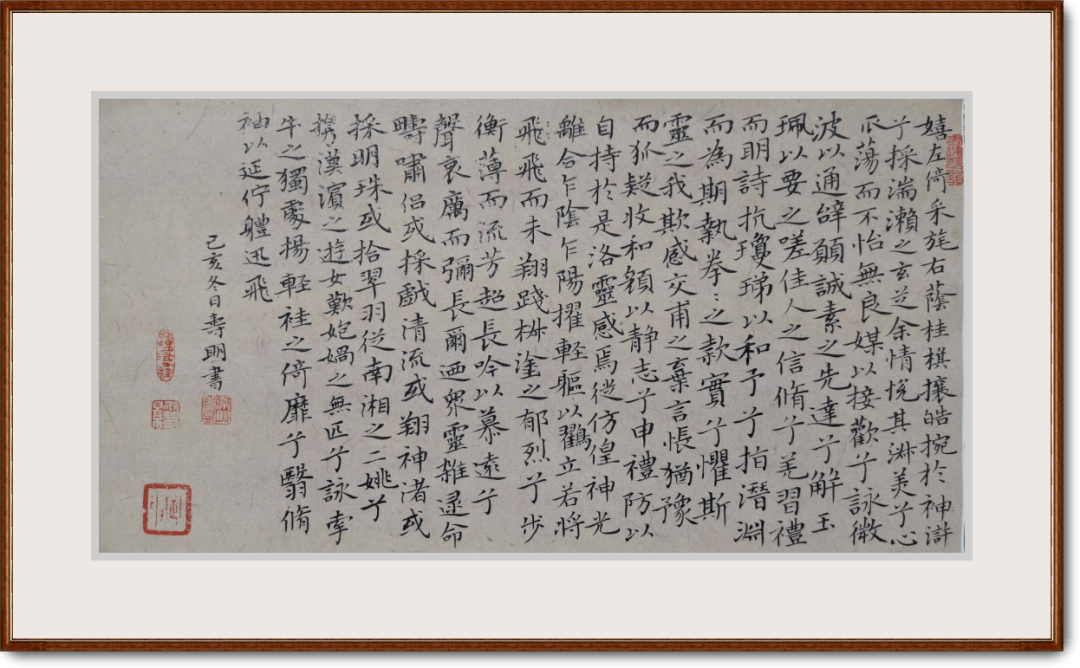 嬉左倚采旄右蔭桂棋攘皓捥於神滸
兮採湍瀨之玄芝余情悅其淋美兮心
爪蕩而不怡無良媒以接歡兮詠微
波以通辝願誠素之先達兮解玉
珮以要之嗟佳人之信脩兮羌習禮
而明詩抗瓊珶以和予兮指潛淵
而為期執拳〻之款實兮懼斯
靈之我欺感交甫之棄言悵猶豫
而狐疑收和顏以静志兮申禮防以
自持於是洛靈感焉從仿偟神光
離合乍陰乍陽擢輕軀以鸛立若將
飛飛而未翔踐椒塗之郁烈兮步
衡薄而流芳超長吟以慕遠兮
聲哀厲而彌長爾迺眾靈雜遝命
疇嘯侣或採戲清流或翔神渚或
採明珠或拾翠羽從南湘之二姚兮
攜漢濱之遊女歎妑媧之無匹兮詠牽
牛之獨處揚輕袿之倚靡兮翳脩
袖以延佇軆迅飛
己亥冬日壽明書